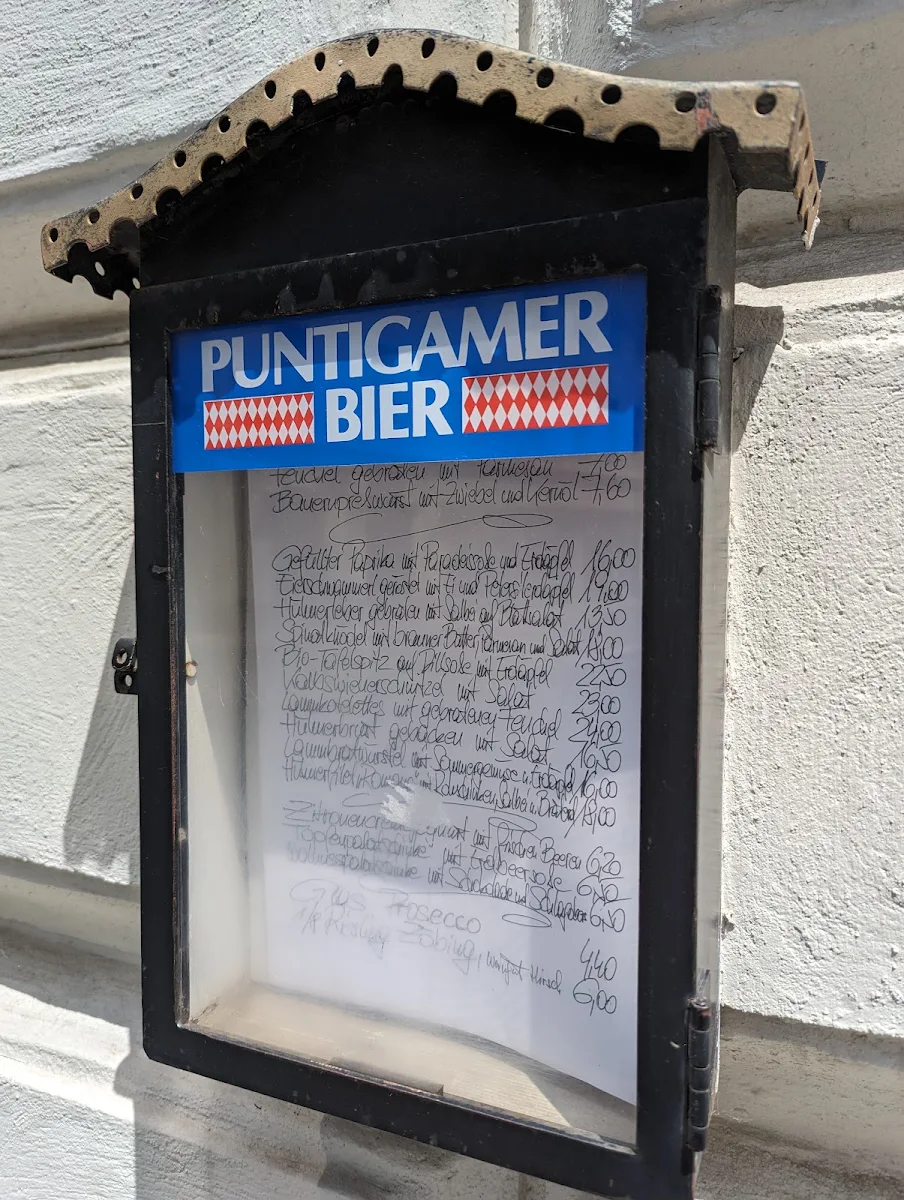 PUNTIGAMER
BIER
Fenchel gebraten mit Parmesan 7,00
Bauernpresswurst mit Zwiebel und Kernöl 7,60
Gefüllter Paprika mit Paradeissoße und Erdäpfel 16,00
Eierschwammerl geröstet mit Ei und Petersilerdäpfel
Hühnerleber gebraten mit Salbei auf Blattsalat 13,50
Spinatknödel mit brauner Butter Parmesan und Salat 18,00
Bio-Tafelspitz auf Dillsoße mit Erdäpfel 22,50
Kalbswienerschnitzel mit Salat 23,00
Lammkotelettes mit gebratenem Fenchel 24,00
Hühnerbrust gebacken mit Salat 16,50
Lammbratwürstel mit Sommergemüse u Erdäpfel 16,00
Hühnerfilet mit Salbei u. 18,00
mit frischen Beeren 6,20
Topfenpalatschinke mit Erdbeersoße 6,50
mit Schokolade und Schlagobers 6,50
Glas Prosecco 4,40
1/8 Riesling Zöbing, Weingut Hirsch 6,00